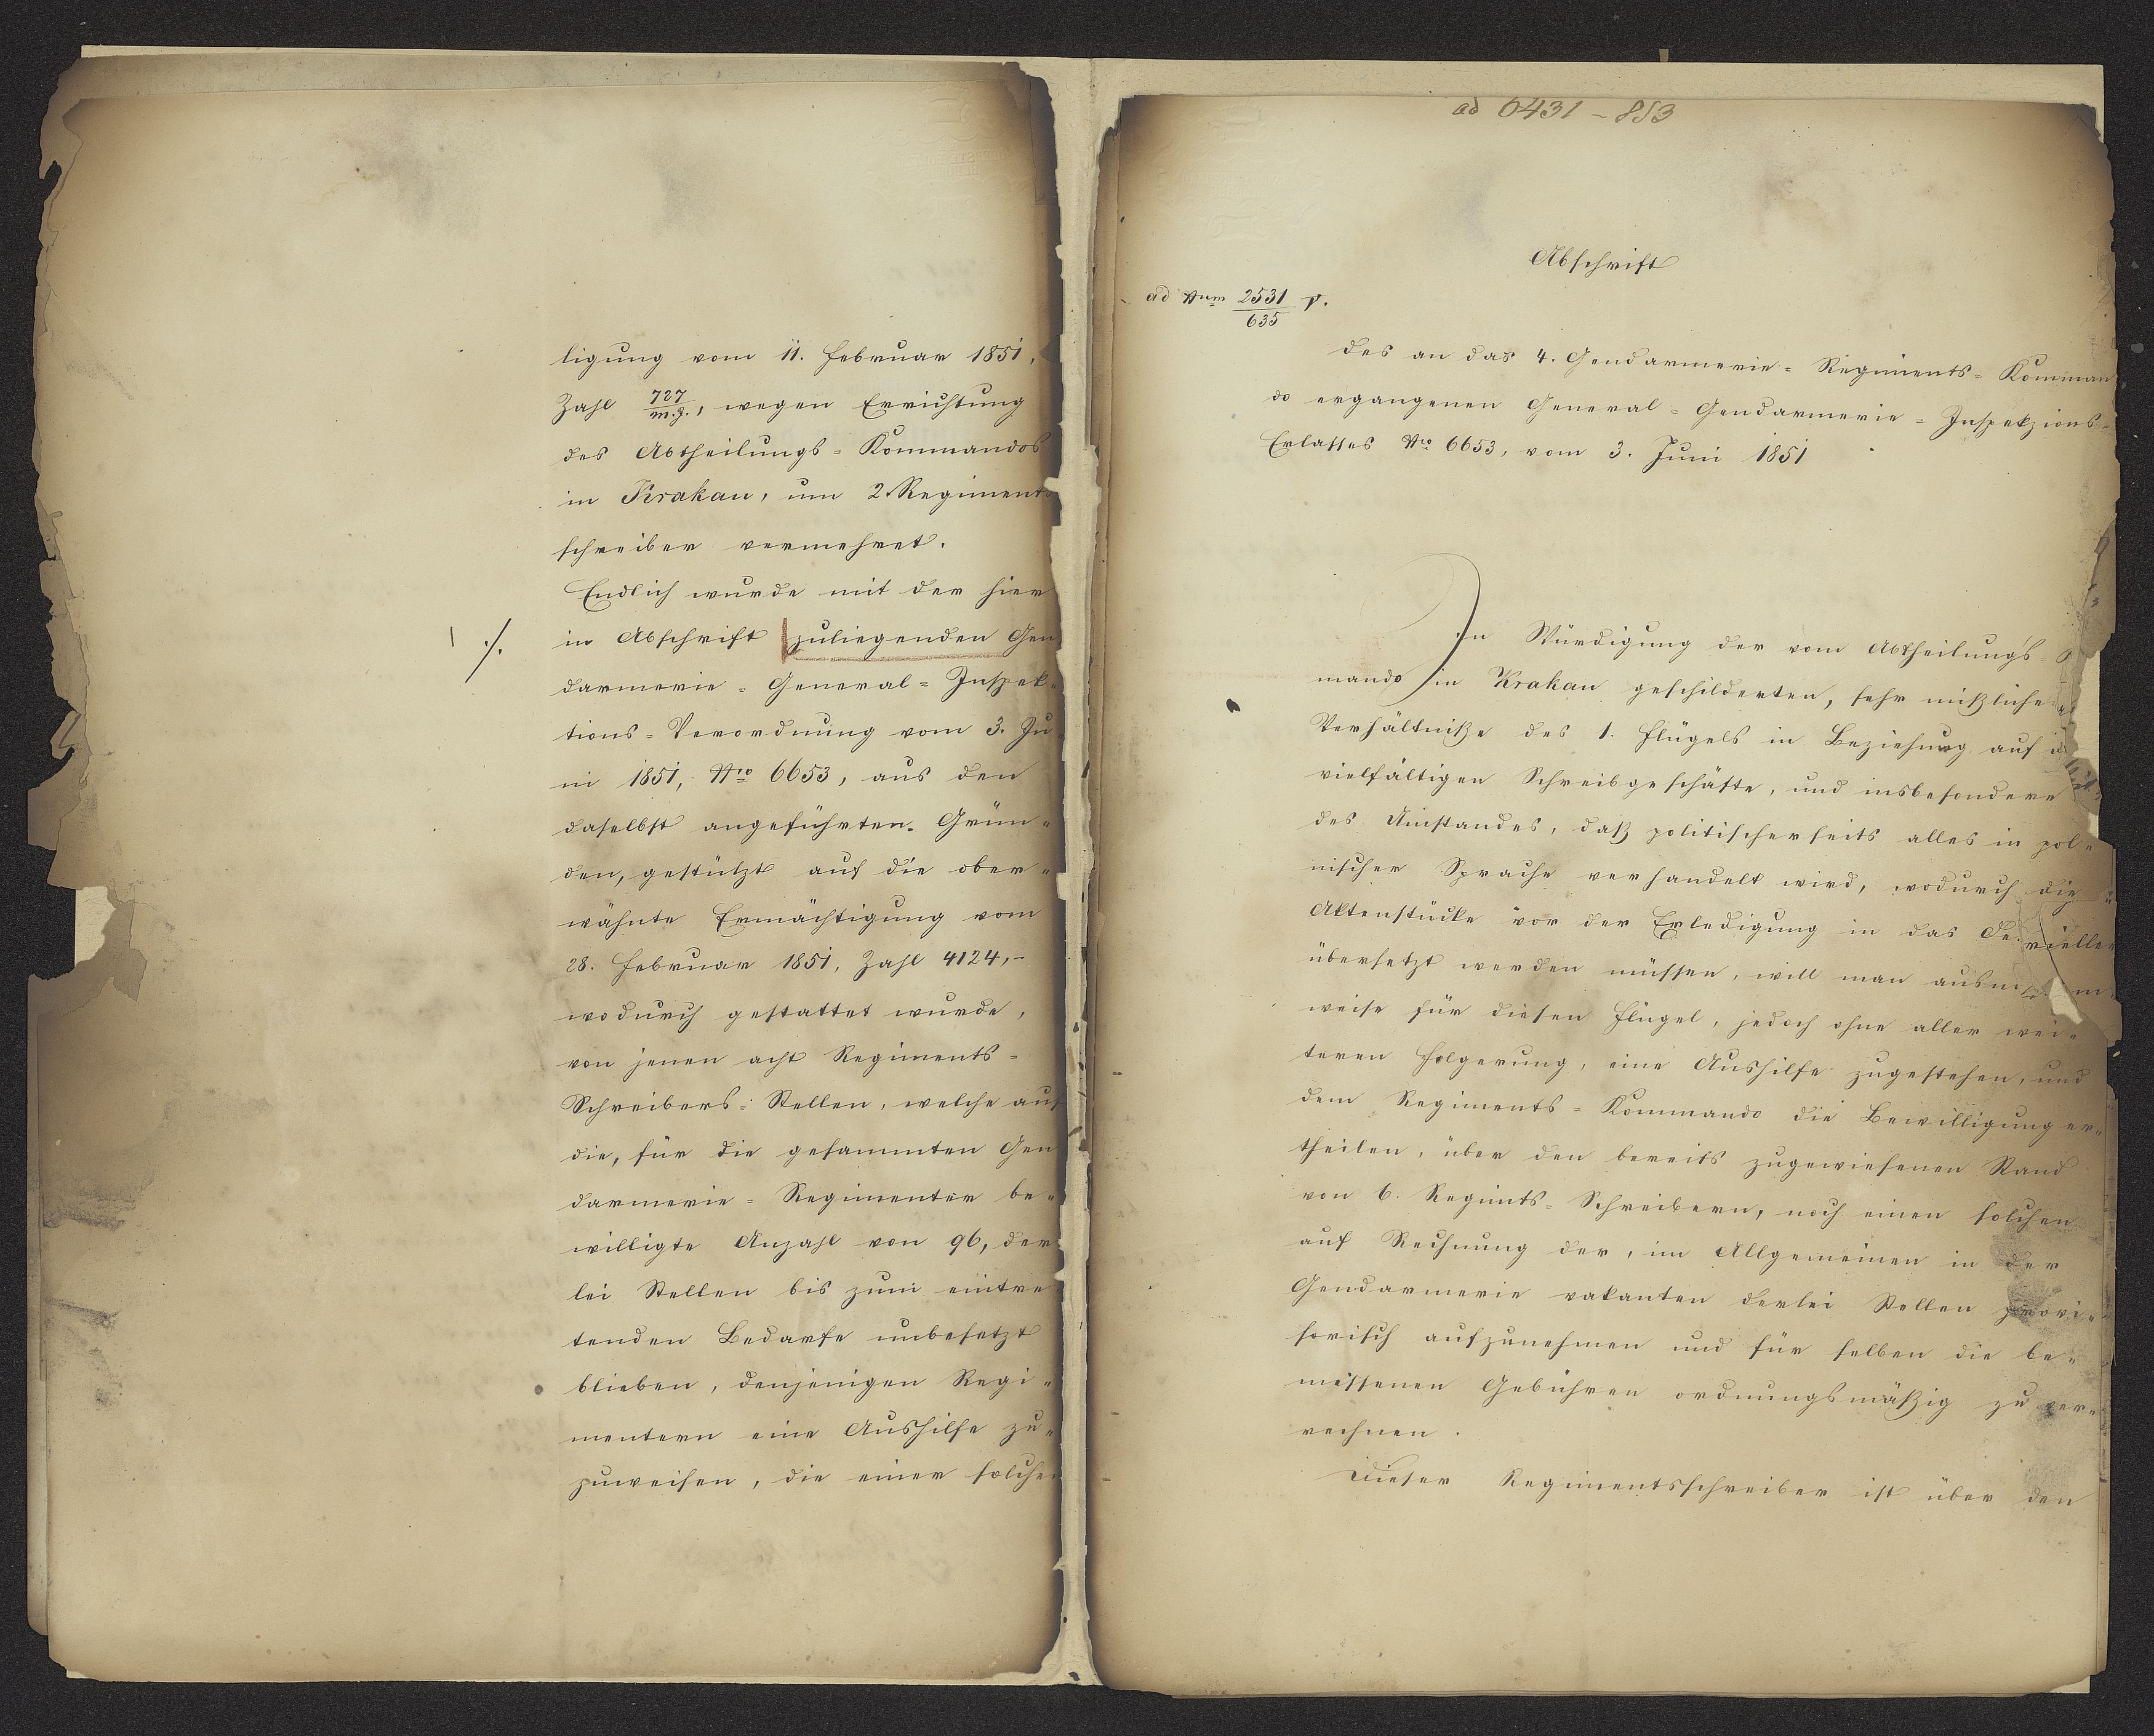 ligung vom 11. Februar 1851,
Zahl 727/m.g., wegen Errichtung
des Abtheilungs=Kommandos
in Krakau, um 2 Regiments
schreiber vermehret.
Endlich wurde mit der hier
./. in Abschrift zuliegenden Gen
darmerie=General=Inspek=
tions=Verordnung vom 3. Ju
ni 1851, Nro 6653, aus den
daselbst angeführten Grün=
den, gestützt auf die ober=
wähnte Ermächtigung vom
28. Februar 1851, Zahl 4124,-
wodurch gestattet wurde,
von jenen acht Regiments=
Schreibers=Stellen, welche auf
die, für die gesammten Gen
darmerie=Regimenter be=
willigte Anzahl von 96, der
lei Stellen bis zum eintre
tenden Bedarfe unbesetzt
blieben, denjenigen Regi=
mentern eine Aushilfe zu=
zuweisen, die einer solchen
ad 6431-853
Abschrift
ad Num 2531/635 p.
des an das 4. Gendarmerie=Regiments=Komman
do ergangenen General=Gendarmerie=Inspekzions=
Erlasses Nro 6653, vom 3. Juni 1851
In Würdigung der vom Abtheilungs=
mando in Krakau geschilderten, sehr mißliche
Verhältniße des 1. Flügels in Beziehung auf
vielfältigen Schreibgeschäfte, und insbesondere
des Umstandes, daß politischerseits alles in pol=
nischer Sprache verhandelt wird, wodurch die
Aktenstücke vor der Erledigung in das
übersetzt werden müssen, will man
weise für diesen Flügel, jedoch ohne aller wei=
teren Folgerung, eine Aushilfe zugestehen, und
dem Regiments=Kommando die Bewilligung er=
theilen, über den bereits zugewiesenen Stand
von 6. Regimts=Schreibern, noch einen solchen
auf Rechnung der, im Allgemeinen in der
Gendarmerie vakanten derlei Stellen provi=
sorisch aufzunehmen und für selben die be=
messenen Gebühren ordnungsmäßig zu ver=
rechnen.
Dieser Regimentsschreiber ist über den